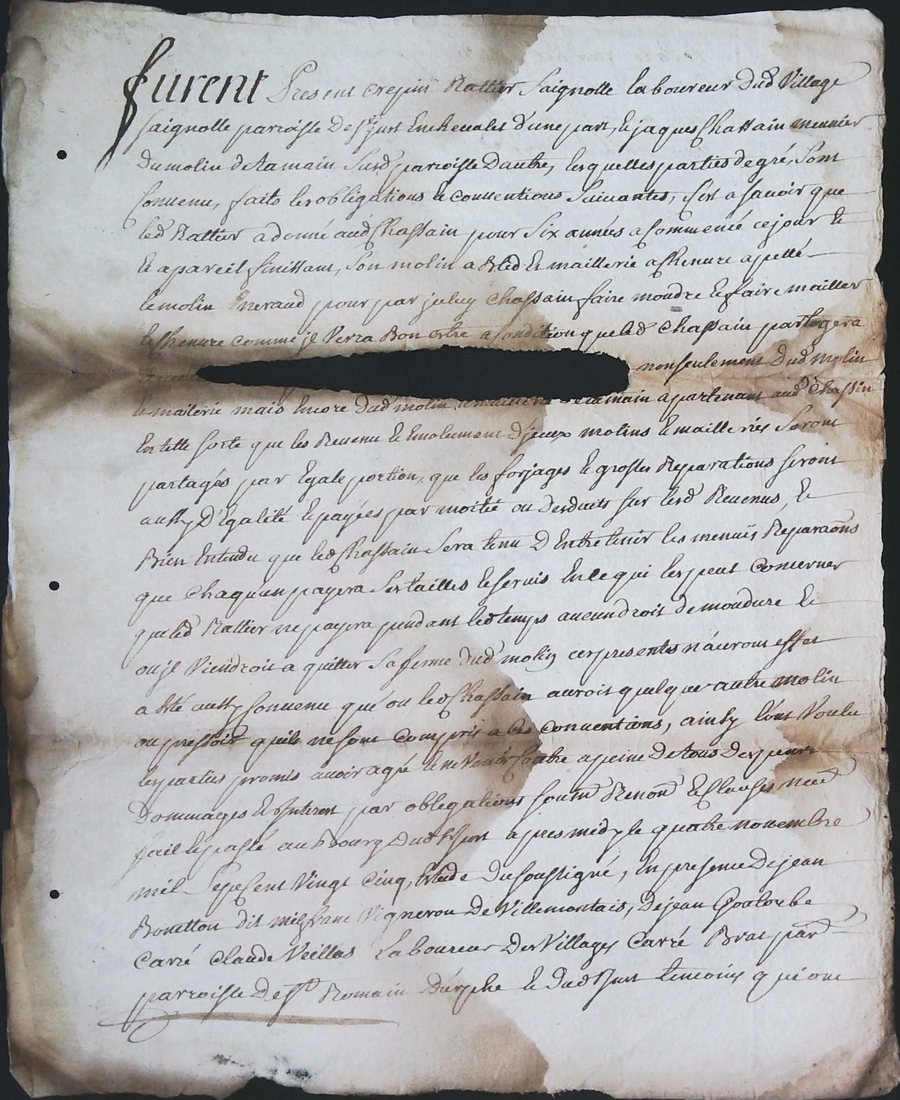 furent Present crepin Rattier Saignolle laboureur dud Village
saignolle parroisse de st just Enchevales d'une part, & jaques Chassain meunier
du molin de Ramain Susd parroisse d'autre, lesquelles parties de gré, Sont
Convenu, faits les obligations & conventions Suivantes, C'est a savoir que
led Rattier a donné aud Chassain pour Six années a Commencé ce jour &
& a pareil finissant, Son molin a Bled & maillerie a Chenure apellé
le molin pour par jceluy Chassain faire moudre & faire mailler
Chenure comme jl Verra Bon estre a Condition que led Chassain partagera
non seulement dud molin
& mailerie mais Encore dud molin & maillerie de Ramain apartenant aud Chassin
En telle sorte que les Revenu & Emolument d'jceux molins & mailleries Seront
partagés par Egale portion, que les forjages & grosses Reparations seront
aussy D'Egalité & payées par moitié ou desduits sur lesd Revenus, &
Bien Entendu que led Chassain Sera tenu d'Entretenir les menues Reparaons
que Chaqu'un payera Ses tailles & servis En ce qui les peut Concerner
que led Rattier ne payera pendant led temps aucun droit de moudure &
ou jl Viendroit a quitter Sa ferme dud molin ces presentes n'auront effet
a Eté aussy Convenu qu'ou led Chassain auroit quelque autre molin
ou pressoir qu'ils ne sont Compris a ces conventions, ainsy l'ont Voulu
les parties promis avoir agré & ne Venir Contre a peine de tous despens
Dommages & Interest par obligations soumi Renon & Clauses nece
fait & passé au Bourg dud St just apres midy le quatre novembre
mil Sept Cent Vingt Cinq, du soussigné, En presence de jean
dit Vigneron de Villemontais, de jean
Carré Claude Veillas Laboureur des Villages Carré Bras
parroisse de st Romain d'urphe & dud St just temoins qui ont